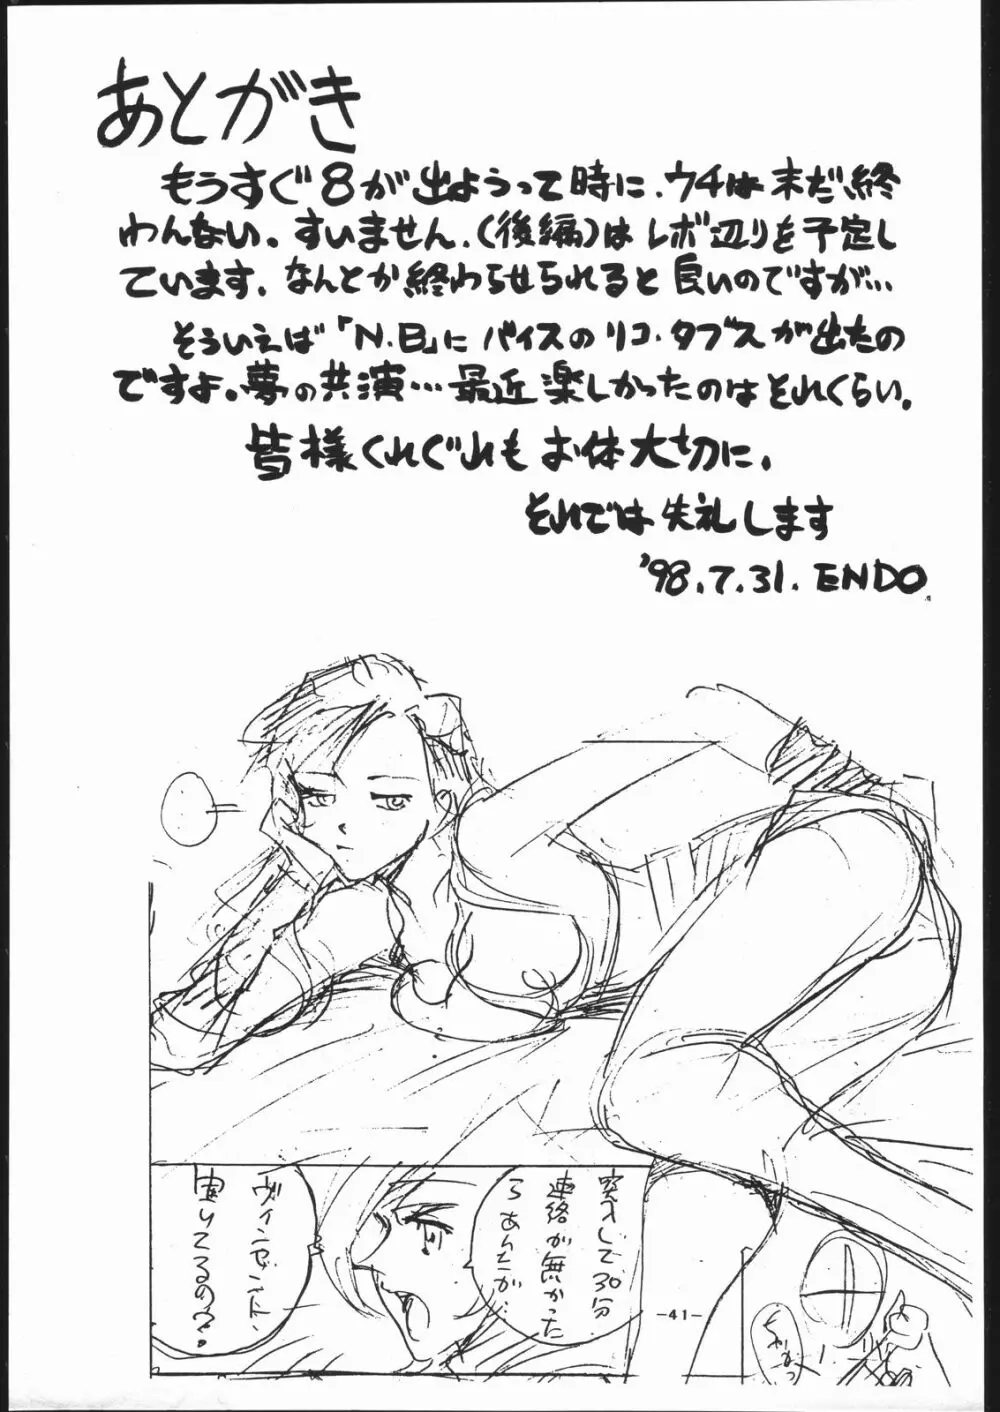 あとがき
もうすぐ8が出ようって時に、ウチは末だ終
わんない。すいません、(後編)はレボ辺りを予定し
ています、なんとか終わらせられると良いのですが…
そういえば「N.B」にバイスのリコ・タブスが出たの
ですよ。夢の共演…最近楽しかったのはそれくらい。
皆様くれぐれもお体大切に、
それでは失礼します
'98.7.31. ENDO
突入して30分
連絡が無かった
らあんたが…
ヴィンセント、
聞いてるの?
-41-